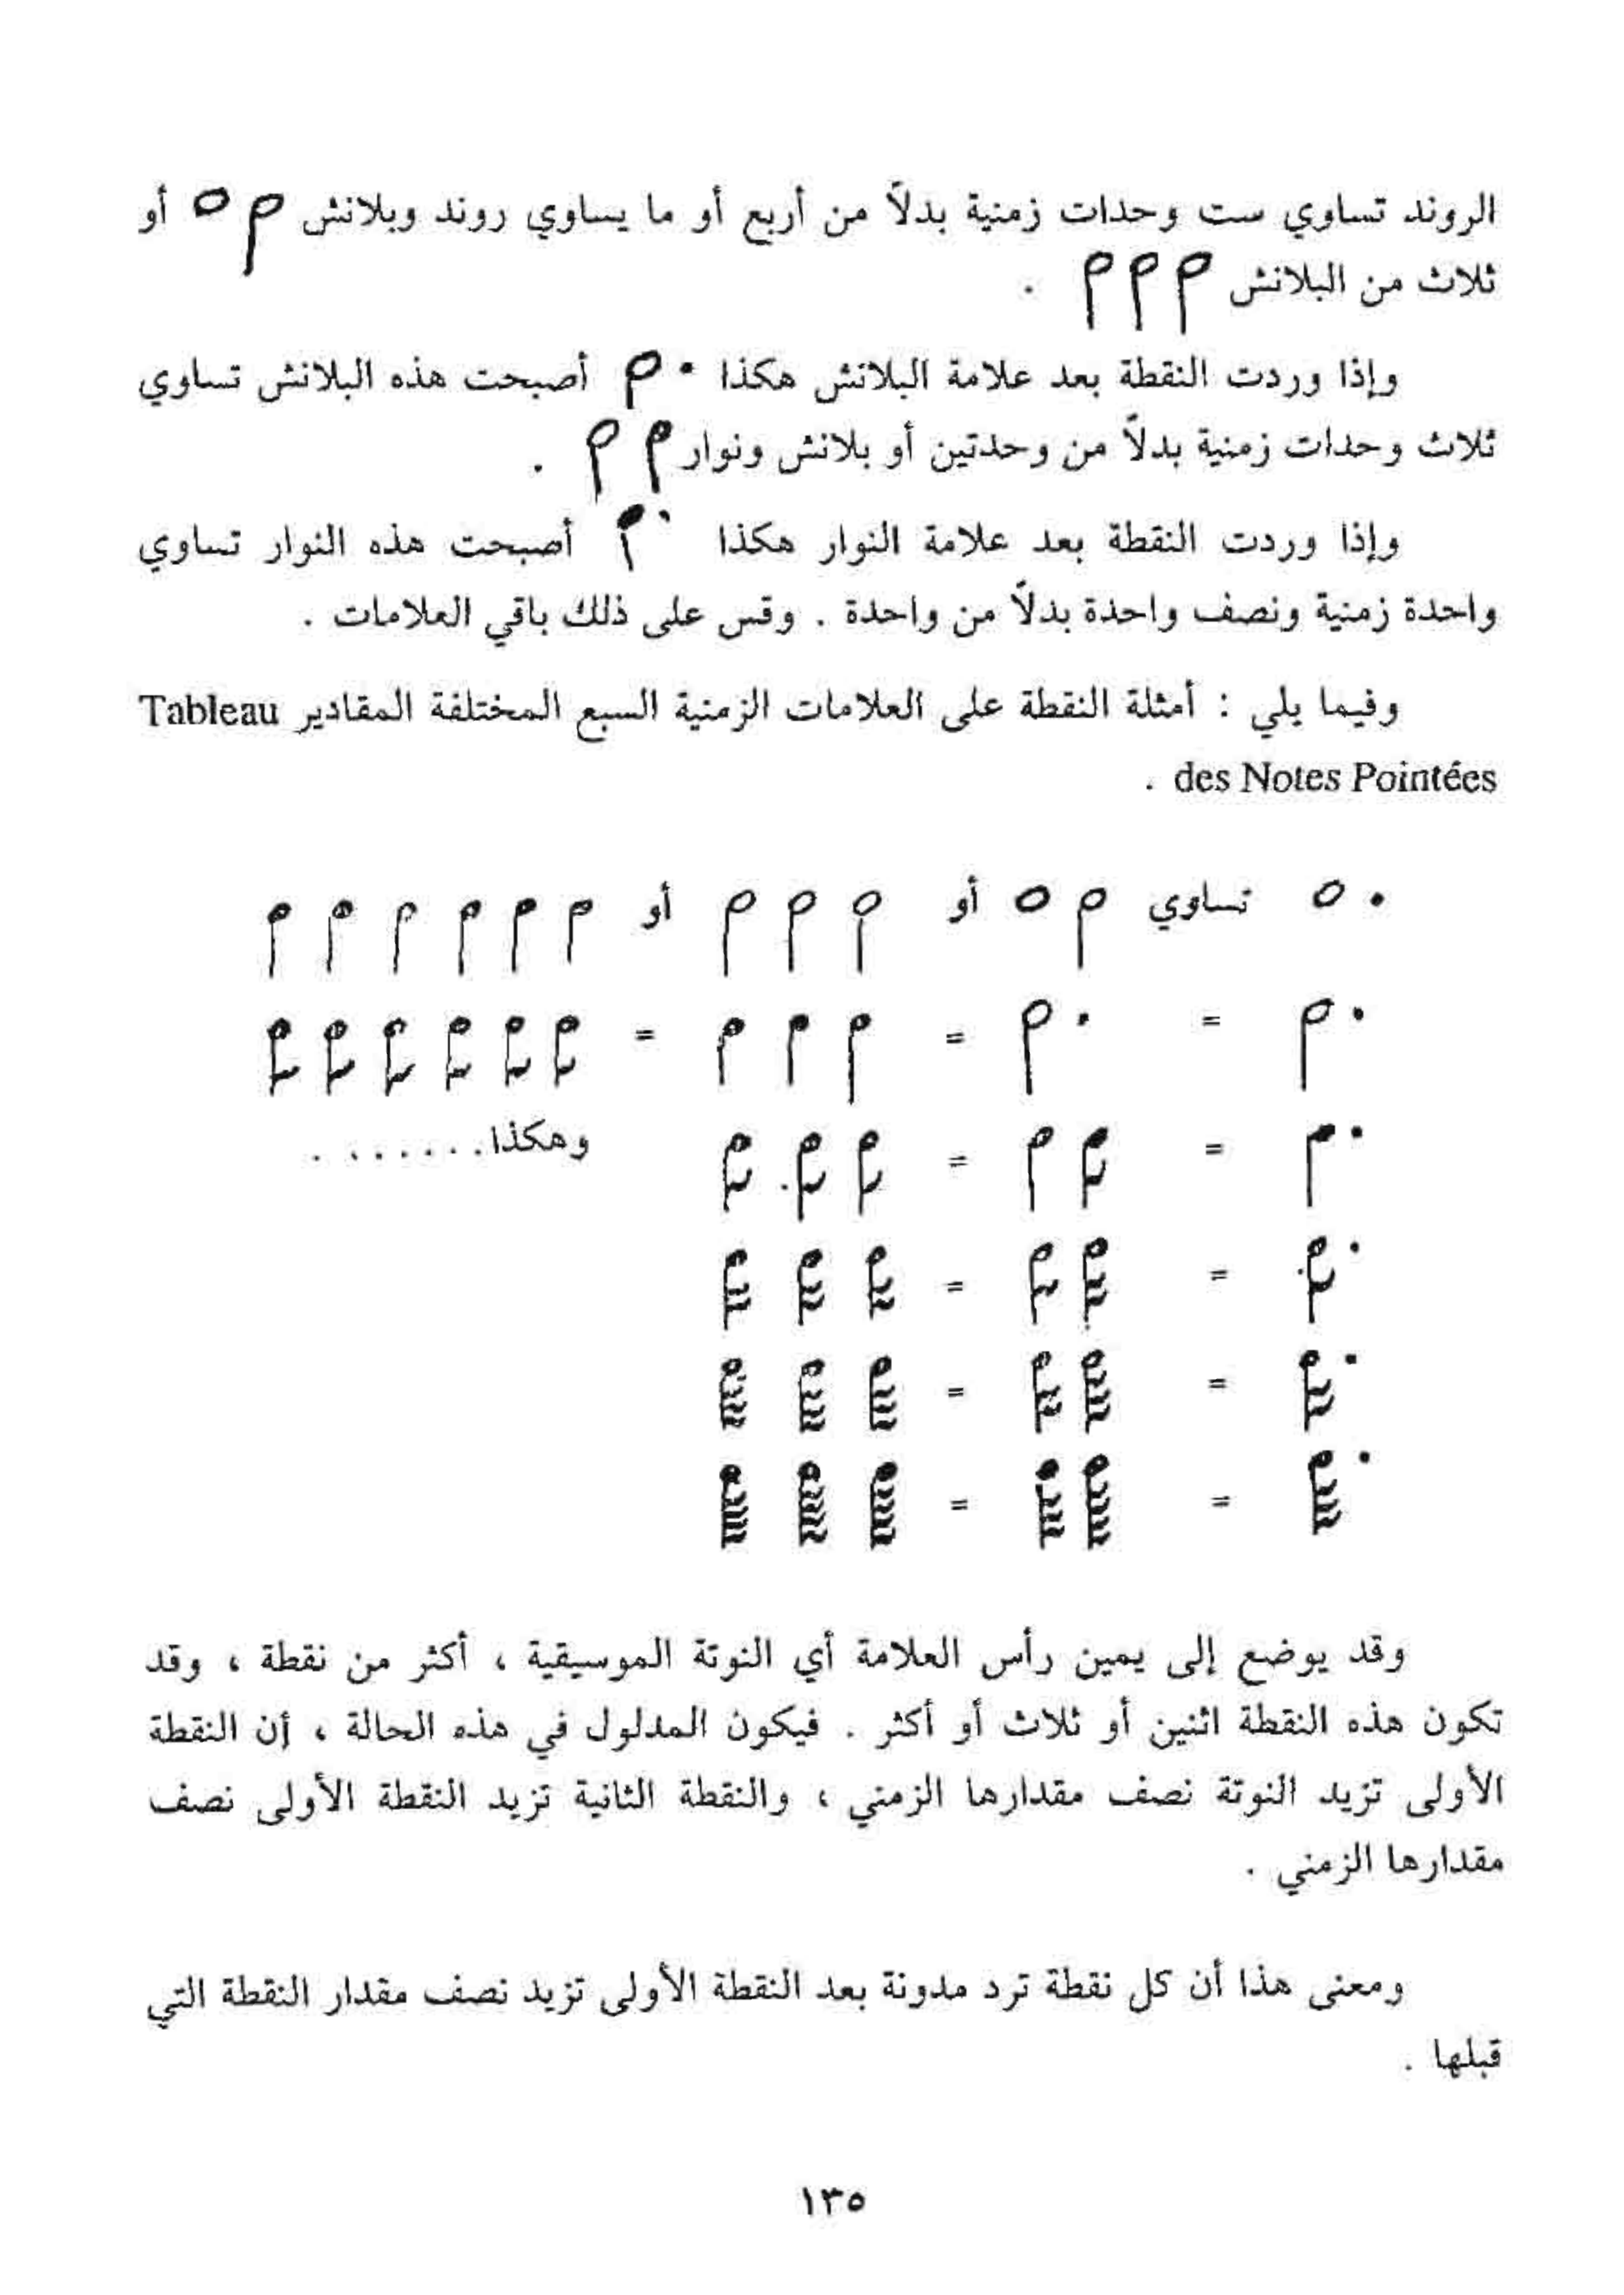 الروند تساوي ست وحدات زمنية بدلاً من أربع أو ما يساوي روند وبلانش أو
ثلاث من البلانش .
وإذا وردت النقطة بعد علامة البلانش هكذا أصبحت هذه البلانش تساوي
ثلاث وحدات زمنية بدلاً من وحدتين أو بلانش ونوار .
وإذا وردت النقطة بعد علامة النوار هكذا أصبحت هذه النوار تساوي
واحدة زمنية ونصف واحدة بدلاً من واحدة . وقس على ذلك باقي العلامات .
وفيما يلي : أمثلة النقطة على العلامات الزمنية السبع المختلفة المقادير Tableau
des Notes Pointées .
تساوي أو أو
= = =
= = وهكذا . . . . . . .
= =
= =
= =
وقد يوضع إلى يمين رأس العلامة أي النوتة الموسيقية ، أكثر من نقطة ، وقد
تكون هذه النقطة اثنين أو ثلاث أو أكثر . فيكون المدلول في هذه الحالة ، أن النقطة
الأولى تزيد النوتة نصف مقدارها الزمني ، والنقطة الثانية تزيد النقطة الأولى نصف
مقدارها الزمني .
ومعنى هذا أن كل نقطة ترد مدونة بعد النقطة الأولى تزيد نصف مقدار النقطة التي
قبلها .
١٣٥